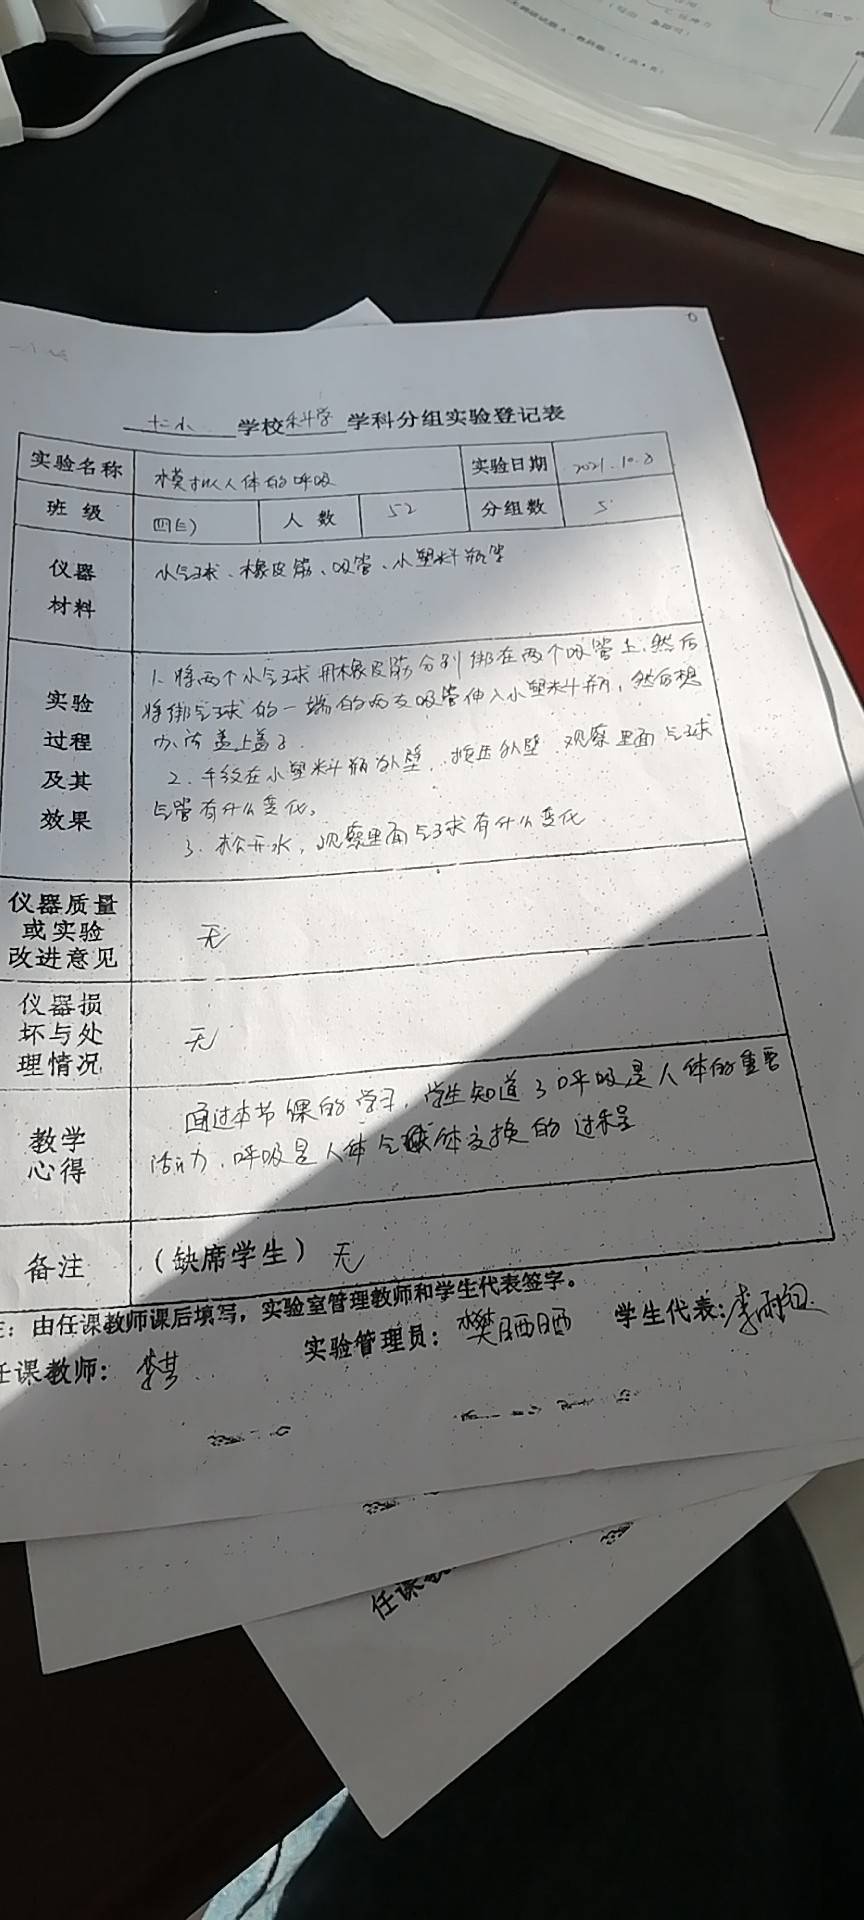 十二小 学校 科学 学科分组实验登记表
实验名称 模拟人体的呼吸 实验日期 2021.10.8
班 级 四(三) 人 数 52 分组数 5
仪器 材料 小气球、橡皮筋、吸管、小塑料瓶等
实验 过程 及其 效果
1、将两个小气球用橡皮筋分别绑在两个吸管上,然后
将绑气球的一端的两支吸管伸入小塑料瓶,然后想
办法盖上盖子.
2、手放在小塑料瓶外壁,按压外壁,观察里面气球
气管有什么变化。
3、松开水,观察里面气球有什么变化
仪器质量 或实验 改进意见 无
仪器损 坏与处 理情况 无
教学 心得
通过本节课的学习,学生知道了呼吸是人体的重要
活力,呼吸是人体气体交换的过程
备注 (缺席学生) 无
:由任课教师课后填写,实验室管理教师和学生代表签字。
任课教师: 实验管理员:樊晒晒 学生代表:李
任课教